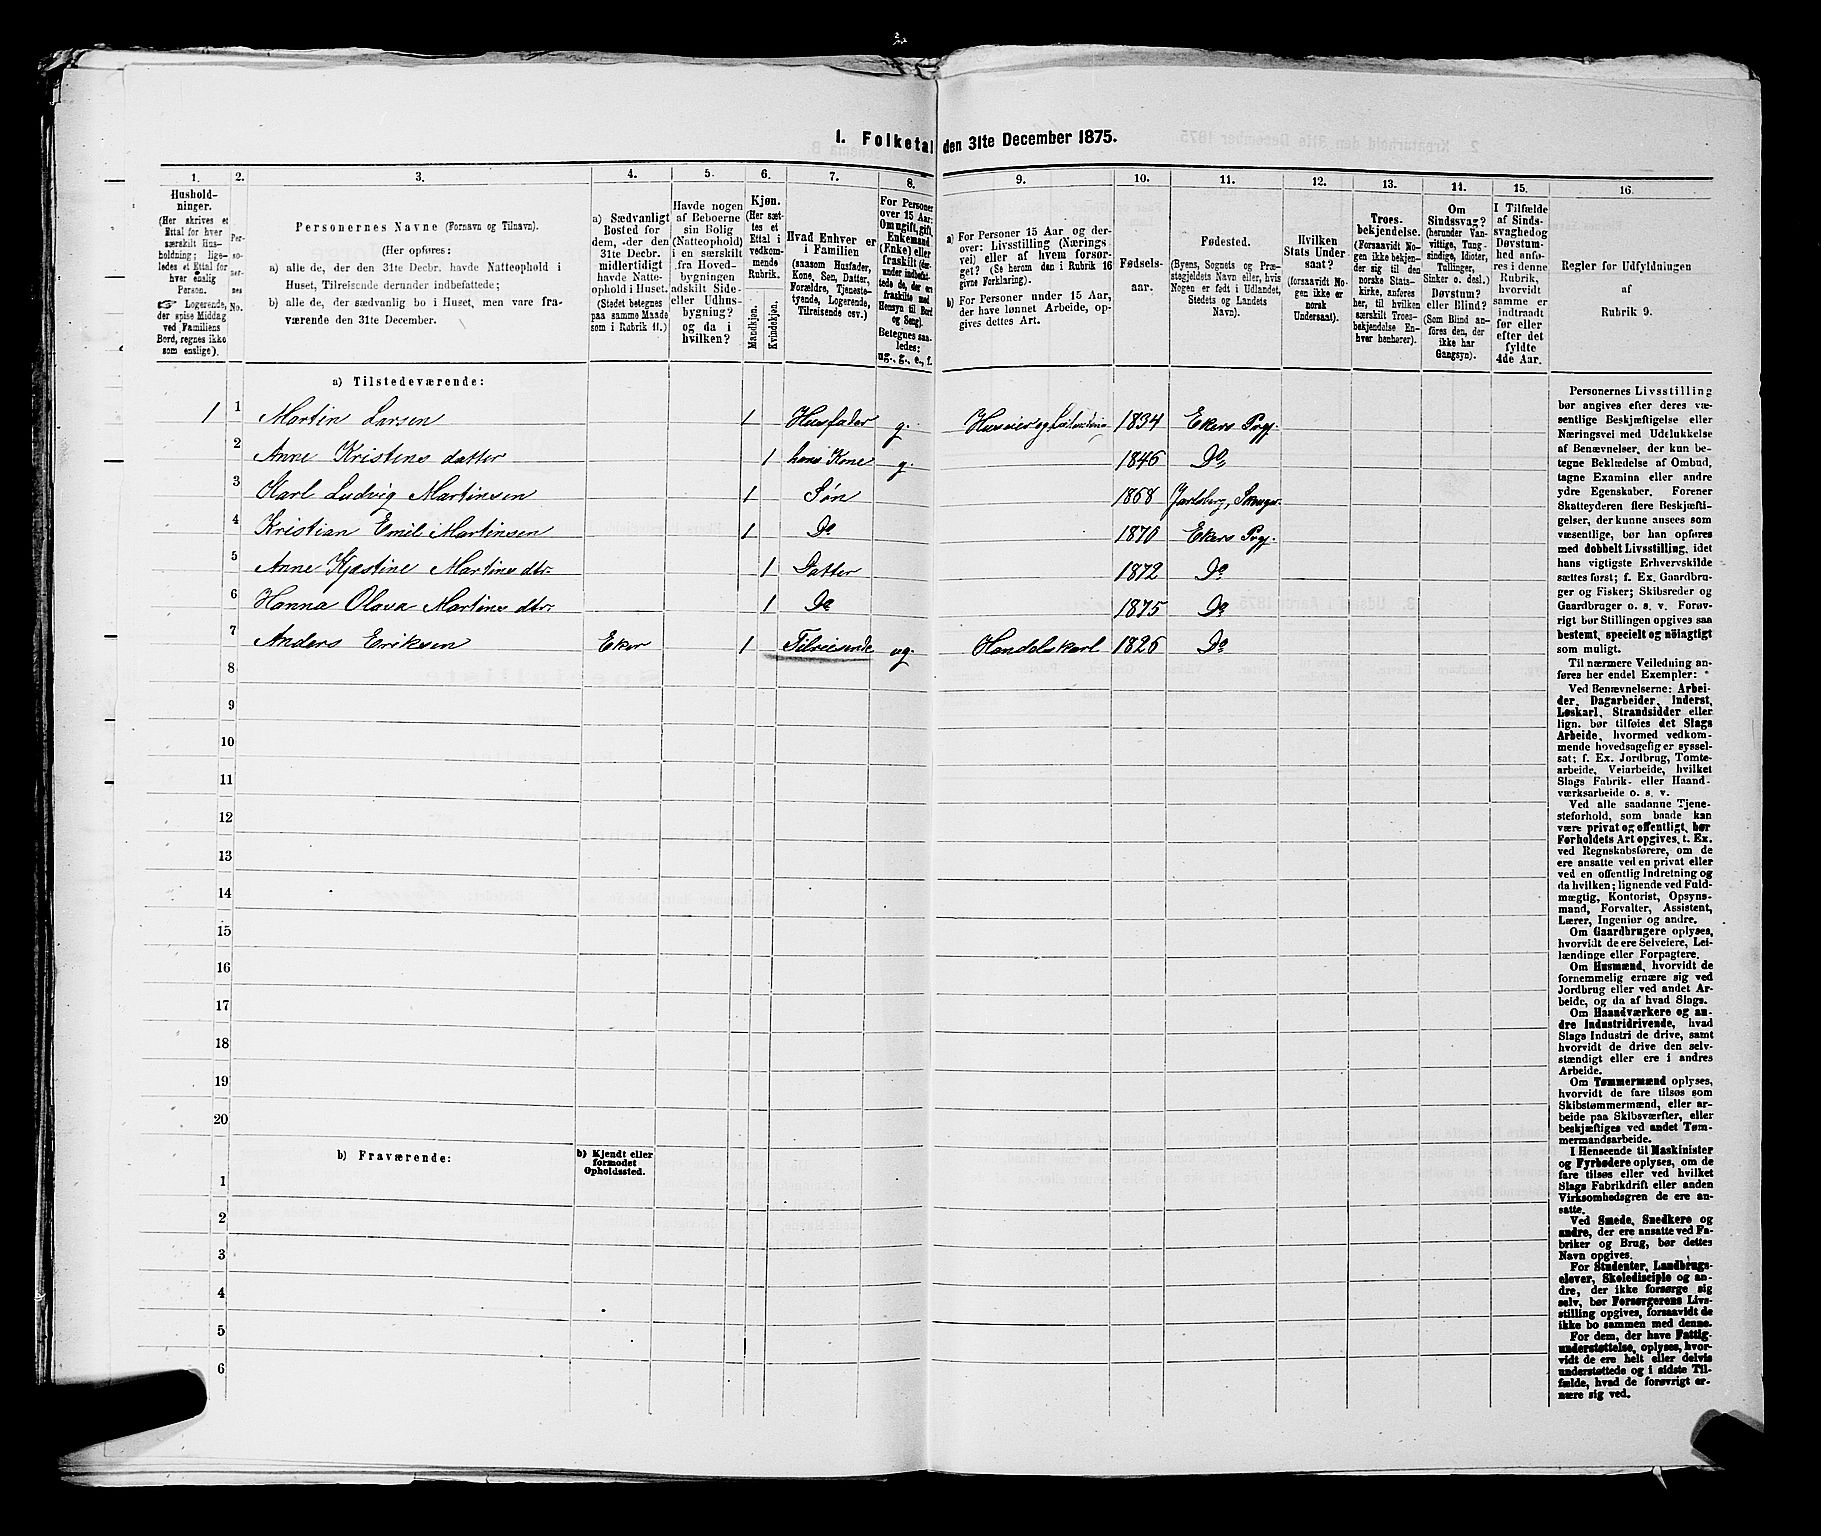 1. Folketal den 31te December 1875.
1.
Hushold-
ninger.
(Her skrives et
Ettal for hver
særskilt Hus-
holdning; lige-
ledes et Ettal for
hver enslig
Person.
☞ Logerende,
der spise Middag
ved Familiens
Bord, regnes ikke
som enslige).
2.
Per-
so-
ner-
nes
No.
3.
Personernes Navne (Fornavn og Tilnavn).
(Her opføres:
a) alle de, der den 31te Decbr. havde Natteophold i
Huset, Tilreisende derunder indbefattede;
b) alle de, der sædvanlig bo i Huset, men vare fra-
værende den 31te December.
4.
a) Sædvanligt
Bosted for
dem, der den
31te Decbr.
midlertidigt
havde Natte-
ophold i Huset.
(Stedet betegnes
paa samme Maade
som i Rubrik 11.)
5.
Havde nogen
af Beboerne
sin Bolig
(Natteophold)
i en særskilt
fra Hoved-
bygningen
adskilt Side-
eller Udhus-
bygning?
og da i
hvilken?
6.
Kjøn.
(Her sæt-
tes et
Ettal i
vedkom-
mende
Rubrik.
Mandkjøn.
Kvindekjøn.
7.
Hvad Enhver er
i Familien
(saasom Husfader,
Kone, Søn, Datter,
Forældre, Tjeneste-
tyende, Logerende,
Tilreisende osv.)
8.
For Personer
over 15 Aar:
Om ugift, gift,
Enkemand
(Enke) eller
fraskilt (der-
under indbefat-
tede de, der ere
fraskilte med
Hensyn til Bord
og Seng).
Betegnes saa-
ledes:
ug., g., e., f.
9.
a) For Personer 15 Aar og der-
over: Livsstilling (Nærings
vei) eller af hvem forsør-
get? (Se herom den i Rubrik 16
givne Forklaring).
b) For Personer under 15 Aar,
der have lønnet Arbeide, op-
gives dettes Art.
10.
Fødsels-
aar.
11.
Fødested.
(Byens, Sognets og Præ-
stegjeldets Navn eller, hvis
Nogen er født i Udlandet,
Stedets og Landets
Navn).
12.
Hvilken
Stats Under
saat?
(forsaavidt No-
gen ikke er
norsk
Undersaat).
13.
Troes-
bekjendelse.
(Forsaavidt No-
gen ikke bekjen-
der sig til den
norske Stats-
kirke, anføres
her, til hvilken
særskilt Troes-
bekjendelse En-
hver henhører).
14.
Om
Sindssvag?
(herunder Van-
vittige, Tung-
sindige, Idioter,
Tullinger,
Sinker o. desl.)
Døvstum?
eller Blind?
(Som Blind an-
føres den, der
ikke har
Gangsyn).
15.
I Tilfælde
af Sinds-
svaghed og
Døvstum-
hed anfø-
res i denne
Rubrik,
hvorvidt
samme er
indtraadt
før eller
efter det
fyldte
4de Aar.
16.
Regler for Udfyldningen
af
Rubrik 9.
a) Tilstedeværende:
1 1 Martin Larsen 1 Husfader g. Huseier og 1834 Ekers Pgj.
2 Anne Kristens datter 1 hans Kone g. 1846 Do
3 Karl Ludvig Martinsen 1 Søn 1868 Jarlsberg,
4 Kristian Emil Martinsen 1 Do 1870 Ekers Pgj.
5 Anne Kjestine Martins dtr. 1 Datter 1872 Do
6 Hanna Olava Martins dtr. 1 Do 1875 Do
7 Anders Eriksen Eker 1 Tilreisende ug. Handelskarl 1826 Do
8
9
10
11
12
13
14
15
16
17
18
19
20
b) Fraværende:
b) Kjendt eller
formodet
Opholdssted.
1
2
3
4
5
6
Personernes Livsstilling
bør angives efter deres væ-
sentlige Beskjæftigelse eller
Næringsvei med Udelukkelse
af Benævnelser, der kun be-
tegne Beklædelse af Ombud,
tagne Examina eller andre
ydre Egenskaber. Forener
Skatteyderen flere Beskjæfti-
gelser, der kunne ansees som
væsentlige, bør han opføres
med dobbelt Livsstilling, idet
hans vigtigste Erhvervskilde
sættes først; f. Ex. Gaardbru-
ger og Fisker; Skibsreder og
Gaardbruger o. s. v. Forøv-
rigt bør Stillingen opgives saa
bestemt, specielt og nöiagtigt
som muligt.
Til nærmere Veiledning an-
føres her endel Exempler:
Ved Benævnelserne: Arbei-
der, Dagarbeider, Inderst,
Løskarl, Strandsidder eller
lign. bør tilføies det Slags
Arbeide, hvormed vedkom-
mende hovedsagelig er syssel-
sat; f. Ex. Jordbrug, Tomte-
arbeide, Veiarbeide, hvilket
Slags Fabrik- eller Haand-
værksarbeide o. s. v.
Ved alle saadanne Tjene-
steforhold, som baade kan
være privat og offentligt, bør
Forholdets Art opgives, t. Ex.
ved Regnskabsførere, om de
ere ansatte ved en privat eller
ved en offentlig Indretning og
da hvilken; lignende ved Fuld-
mægtig, Kontorist, Opsyns-
mand, Forvalter, Assistent,
Lærer, Ingeniør og andre.
Om Gaardbrugere oplyses,
hvorvidt de ere Selveiere, Lei-
lændinge eller Forpagtere.
Om Husmænd, hvorvidt de
fornemmelig ernære sig ved
Jordbrug eller ved andet Ar-
beide, og da af hvad Slags.
Om Haandværkere og an-
dre Industridrivende, hvad
Slags Industri de drive, samt
hvorvidt de drive den selv-
stændigt eller ere i andres
Arbeide.
Om Tømmermænd oplyses,
hvorvidt de fare tilsøs som
Skibstømmermænd, eller ar-
beide paa Skibsværfter, eller
beskjæftiges ved andet Tøm-
mermandsarbeide.
I Henseende til Maskinister
og Fyrbødere oplyses, om de
fare tilsøs eller ved hvilket
Slags Fabrikdrift eller anden
Virksomhedsgren de ere an-
satte.
Ved Smede, Snedkere og
andre, der ere ansatte ved Fa-
briker og Brug, bør dettes
Navn opgives.
For Studenter, Landbrugs-
elever, Skoledisciple og an-
dre, der ikke forsørge sig
selv, bør Forsørgerens Livs-
stilling opgives, forsaavidt de
ikke bo sammen med denne.
For dem, der have Fattig-
understøttelse, oplyses, hvor-
vidt de ere helt eller delvis
understøttede og i sidste Til-
fælde, hvad de forøvrigt er-
nære sig ved.